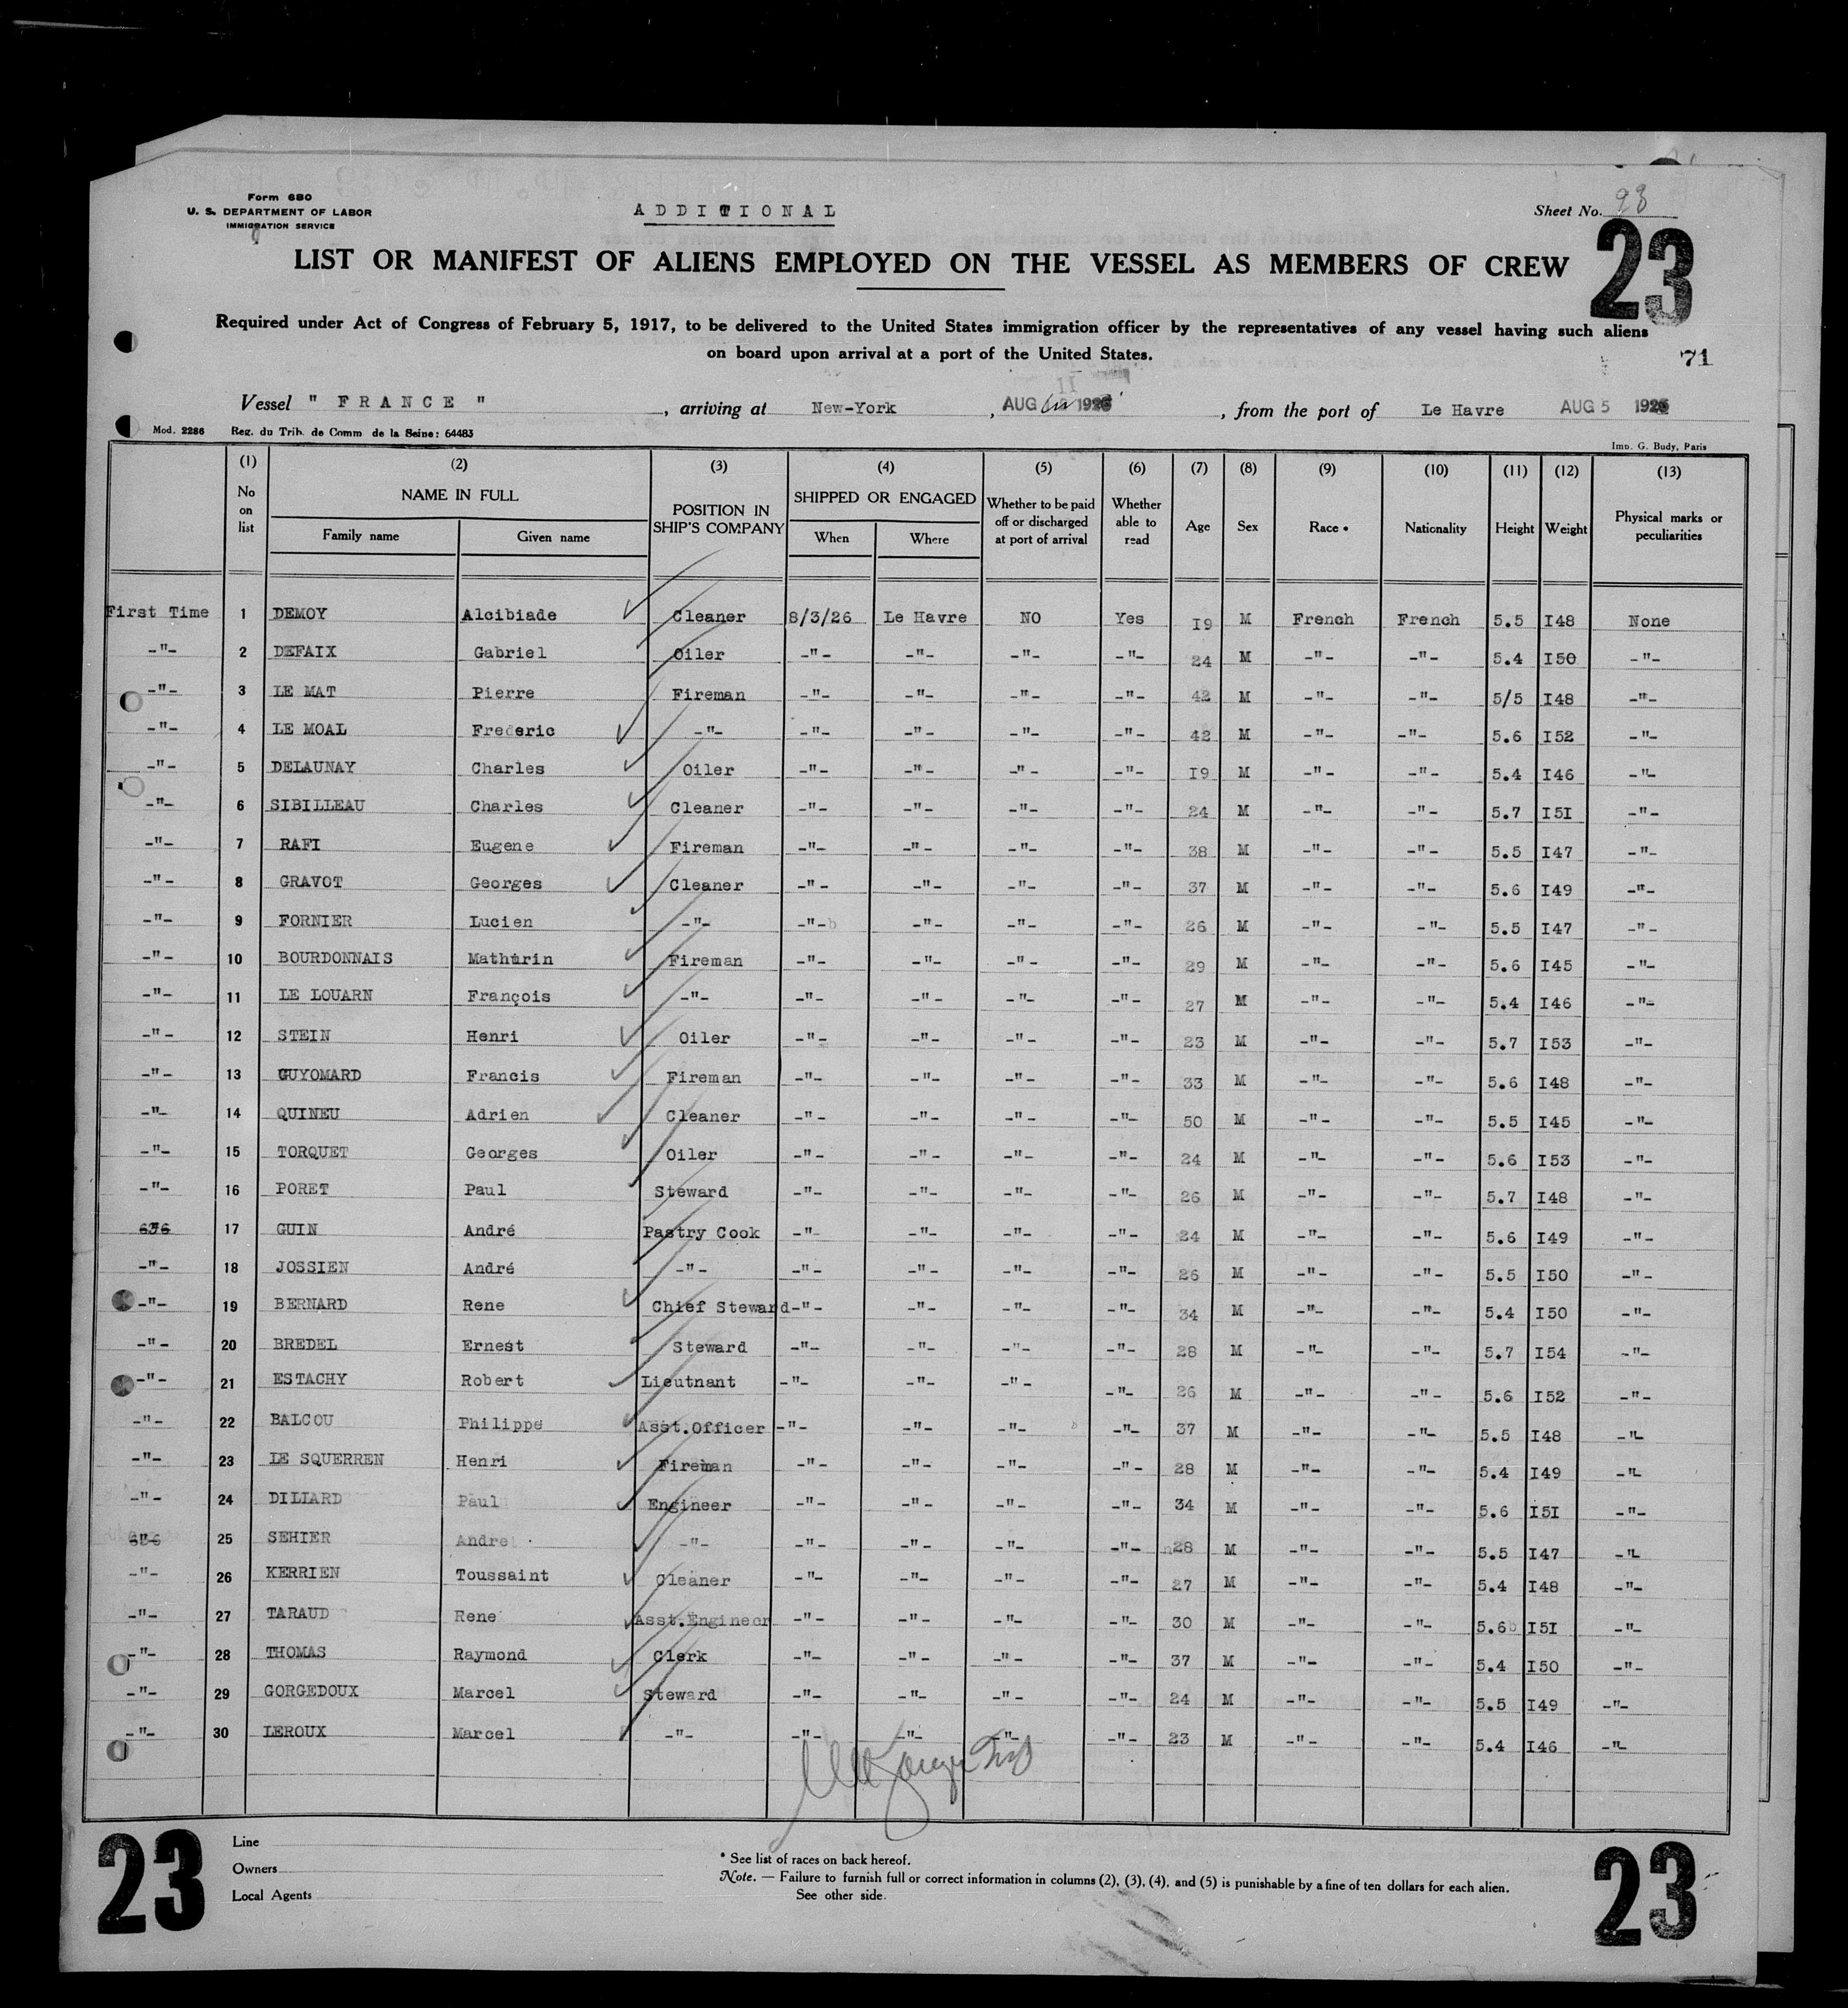 Form 680
U. S. DEPARTMENT OF LABOR
IMMIGRATION SERVICE
ADDITIONAL
Sheet No. 98
23
LIST OR MANIFEST OF ALIENS EMPLOYED ON THE VESSEL AS MEMBERS OF CREW
Required under Act of Congress of February 5, 1917, to be delivered to the United States immigration officer by the representatives of any vessel having such aliens
on board upon arrival at a port of the United States.
71
Vessel " FRANCE " , arriving at New-York , AUG 1926 , from the port of Le Havre AUG 5 1926
Mod. 2286 Reg. du Trib. de Comm de la Seine: 64483
Imp. G. Budy, Paris
(1) (2) (3) (4) (5) (6) (7) (8) (9) (10) (11) (12) (13)
No on list NAME IN FULL POSITION IN SHIP'S COMPANY SHIPPED OR ENGAGED Whether to be paid off or discharged at port of arrival Whether able to read Age Sex Race * Nationality Height Weight Physical marks or peculiarities
Family name Given name When Where
First Time 1 DEMOY Alcibiade Cleaner 8/3/26 Le Havre NO Yes I9 M French French 5.5 I48 None
-"- 2 DEFAIX Gabriel Oiler -"- -"- -"- -"- 24 M -"- -"- 5.4 I50 -"-
-"- 3 LE MAT Pierre Fireman -"- -"- -"- -"- 42 M -"- -"- 5/5 I48 -"-
-"- 4 LE MOAL Frederic -"- -"- -"- -"- -"- 42 M -"- -"- 5.6 I52 -"-
-"- 5 DELAUNAY Charles Oiler -"- -"- -"- -"- I9 M -"- -"- 5.4 I46 -"-
-"- 6 SIBILLEAU Charles Cleaner -"- -"- -"- -"- 24 M -"- -"- 5.7 I5I -"-
-"- 7 RAFI Eugene Fireman -"- -"- -"- -"- 38 M -"- -"- 5.5 I47 -"-
-"- 8 GRAVOT Georges Cleaner -"- -"- -"- -"- 37 M -"- -"- 5.6 I49 -"-
-"- 9 FORNIER Lucien -"- -"- -"- -"- -"- 26 M -"- -"- 5.5 I47 -"-
-"- 10 BOURDONNAIS Mathurin Fireman -"- -"- -"- -"- 29 M -"- -"- 5.6 I45 -"-
-"- 11 LE LOUARN François -"- -"- -"- -"- -"- 27 M -"- -"- 5.4 I46 -"-
-"- 12 STEIN Henri Oiler -"- -"- -"- -"- 23 M -"- -"- 5.7 I53 -"-
-"- 13 GUYOMARD Francis Fireman -"- -"- -"- -"- 33 M -"- -"- 5.6 I48 -"-
-"- 14 QUINEU Adrien Cleaner -"- -"- -"- -"- 50 M -"- -"- 5.5 I45 -"-
-"- 15 TORQUET Georges Oiler -"- -"- -"- -"- 24 M -"- -"- 5.6 I53 -"-
-"- 16 PORET Paul Steward -"- -"- -"- -"- 26 M -"- -"- 5.7 I48 -"-
-"- 17 GUIN André Pastry Cook -"- -"- -"- -"- 24 M -"- -"- 5.6 I49 -"-
-"- 18 JOSSIEN André -"- -"- -"- -"- -"- 26 M -"- -"- 5.5 I50 -"-
-"- 19 BERNARD Rene Chief Steward -"- -"- -"- -"- 34 M -"- -"- 5.4 I50 -"-
-"- 20 BREDEL Ernest Steward -"- -"- -"- -"- 28 M -"- -"- 5.7 I54 -"-
-"- 21 ESTACHY Robert Lieutnant -"- -"- -"- -"- 26 M -"- -"- 5.6 I52 -"-
-"- 22 BALCOU Philippe Asst.Officer -"- -"- -"- -"- 37 M -"- -"- 5.5 I48 -"-
-"- 23 LE SQUERREN Henri Fireman -"- -"- -"- -"- 28 M -"- -"- 5.4 I49 -"-
-"- 24 DILIARD Paul Engineer -"- -"- -"- -"- 34 M -"- -"- 5.6 I5I -"-
-"- 25 SEHIER Andre -"- -"- -"- -"- -"- 28 M -"- -"- 5.5 I47 -"-
-"- 26 KERRIEN Toussaint Cleaner -"- -"- -"- -"- 27 M -"- -"- 5.4 I48 -"-
-"- 27 TARAUD Rene Asst.Engineer -"- -"- -"- -"- 30 M -"- -"- 5.6 I5I -"-
-"- 28 THOMAS Raymond Clerk -"- -"- -"- -"- 37 M -"- -"- 5.4 I50 -"-
-"- 29 GORGEDOUX Marcel Steward -"- -"- -"- -"- 24 M -"- -"- 5.5 I49 -"-
-"- 30 LEROUX Marcel -"- -"- -"- -"- -"- 23 M -"- -"- 5.4 I46 -"-
23
Line
Owners
Local Agents
* See list of races on back hereof.
Note. — Failure to furnish full or correct information in columns (2), (3), (4), and (5) is punishable by a fine of ten dollars for each alien.
See other side.
23